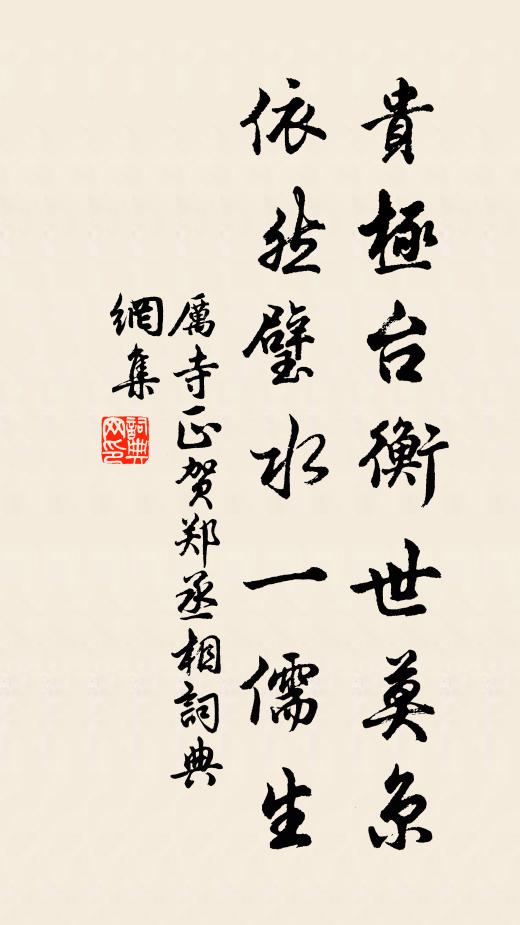 貴極台衡世莫京
依然璧水一儒生
厲寺正贺郑丞相詞典
網集
詞典
网印